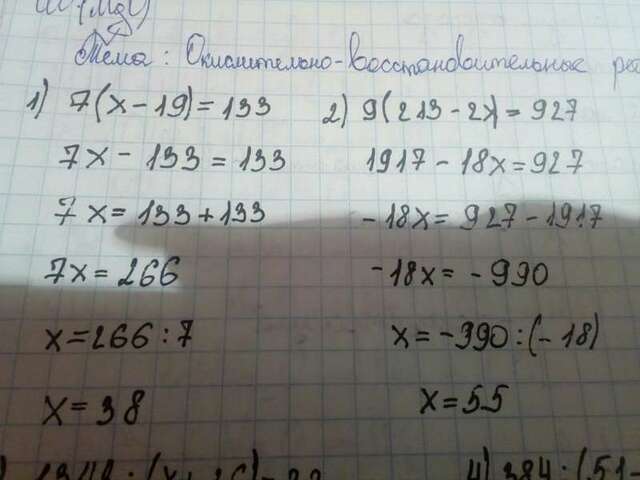 Тема: Окислительно-восстановительные
1) 7(x-19)=133
7x-133=133
7x=133+133
7x=266
x=266:7
x=38
2) 9(213-2x)=927
1917-18x=927
-18x=927-1917
-18x=-990
x=-990:(-18)
x=55
4) 384:(51-